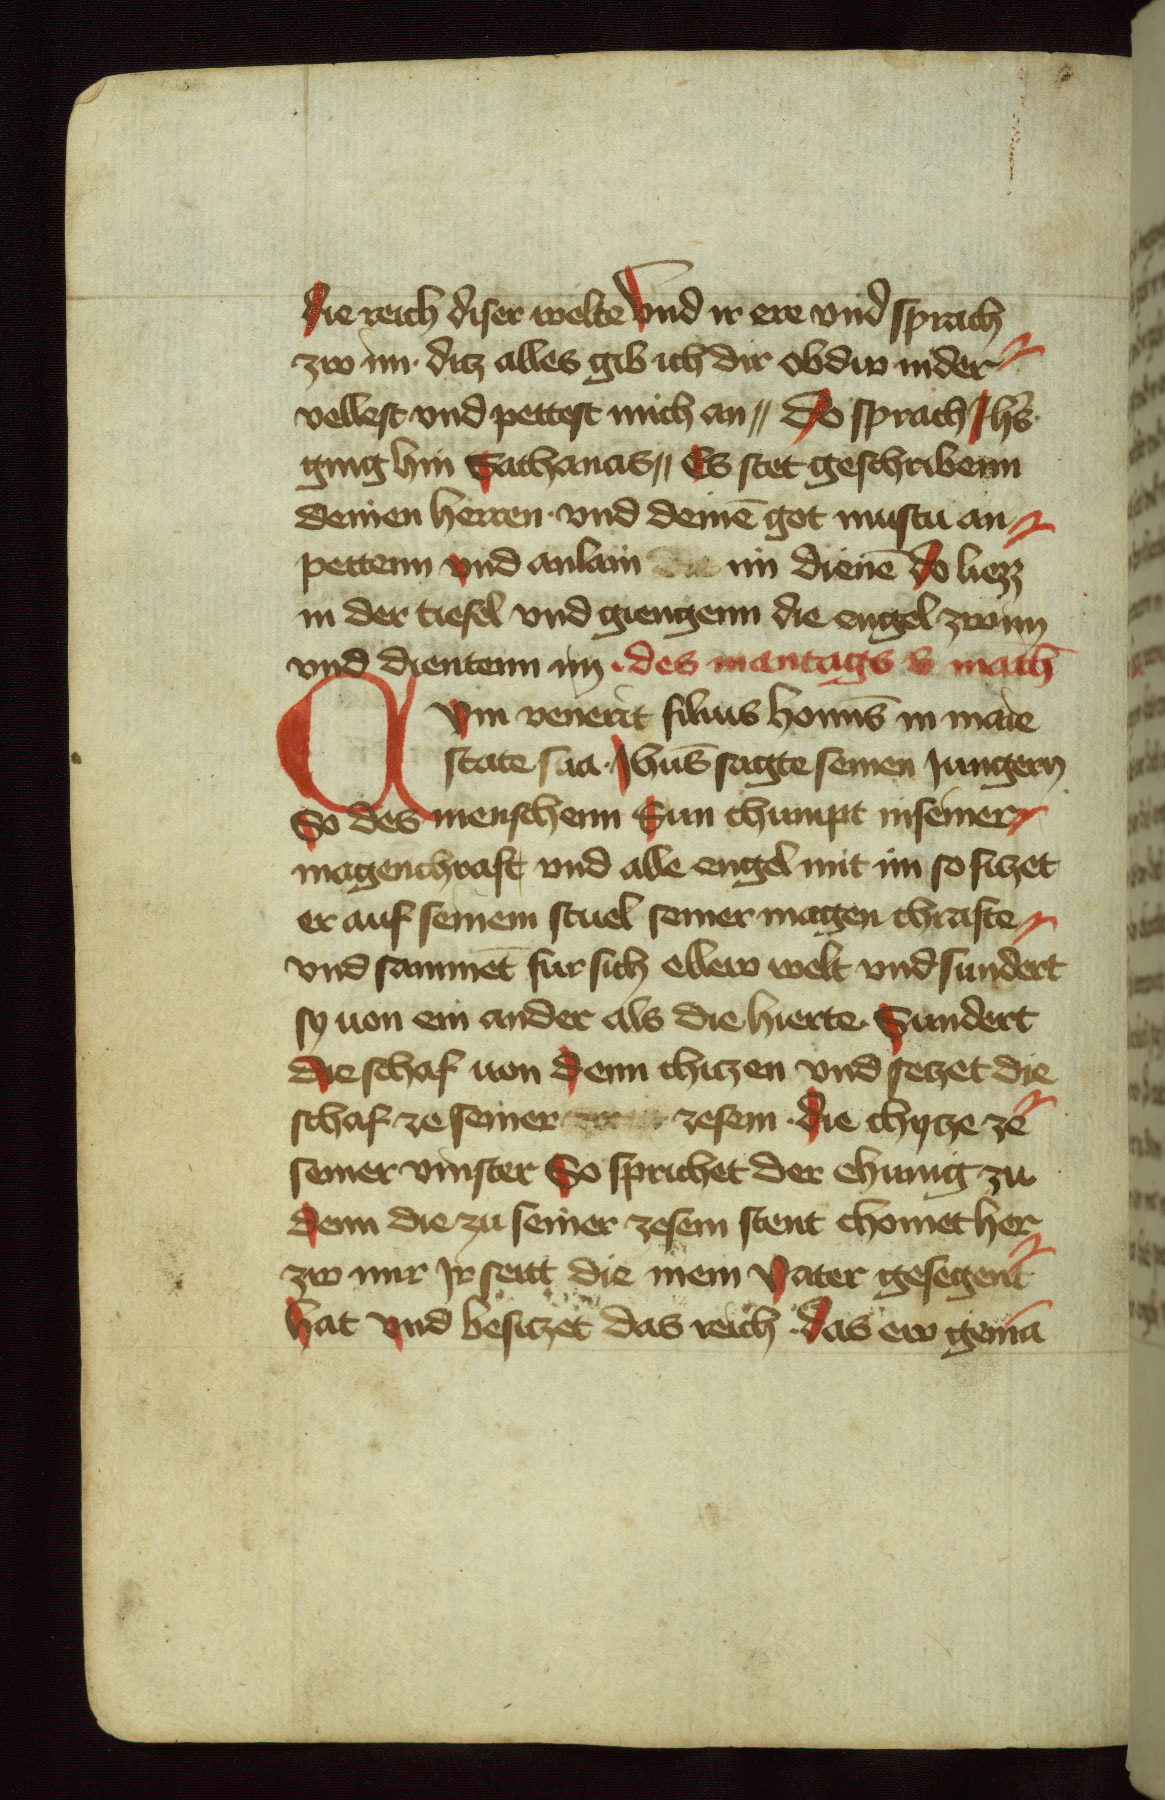 die reich diser welte Vnd ir ere vnd sprach
zw im· ditz alles gib ich dir ob dw nider
vellest vnd pettest mich an // Do sprach Jhs̄·
ging hin Sathanas // Es stet geschribenn
deinen herren· vnd deinē got mustu an
pettenn vnd anlain im dienē do liezz
in der tiefel vnd giengenn die engel zw im
vnd dientenn im ·des mantags
Qum venerit filius homīs in maie
state sua· Jhus̄ sagte seinen Jungern
So des menschenn Sun chumpt in seiner
magenchraft vnd alle engel mit im so siczet
er auf seinem stuel seiner magen chrafte
vnd sammēt fur sich ellew welt vnd sundert
sy uon ein ander als die hierte· Sundert
die schaf uon denn chiczen vnd seczet die
schaf ze seiner zesem· die chycze ze
seiner vinster So sprichet der chunig zu
denn die zu seiner zesem stent chomet her
zw mir Jr seitt die mein Vater gesegent
hat vnd besiczet das reich ·das ew